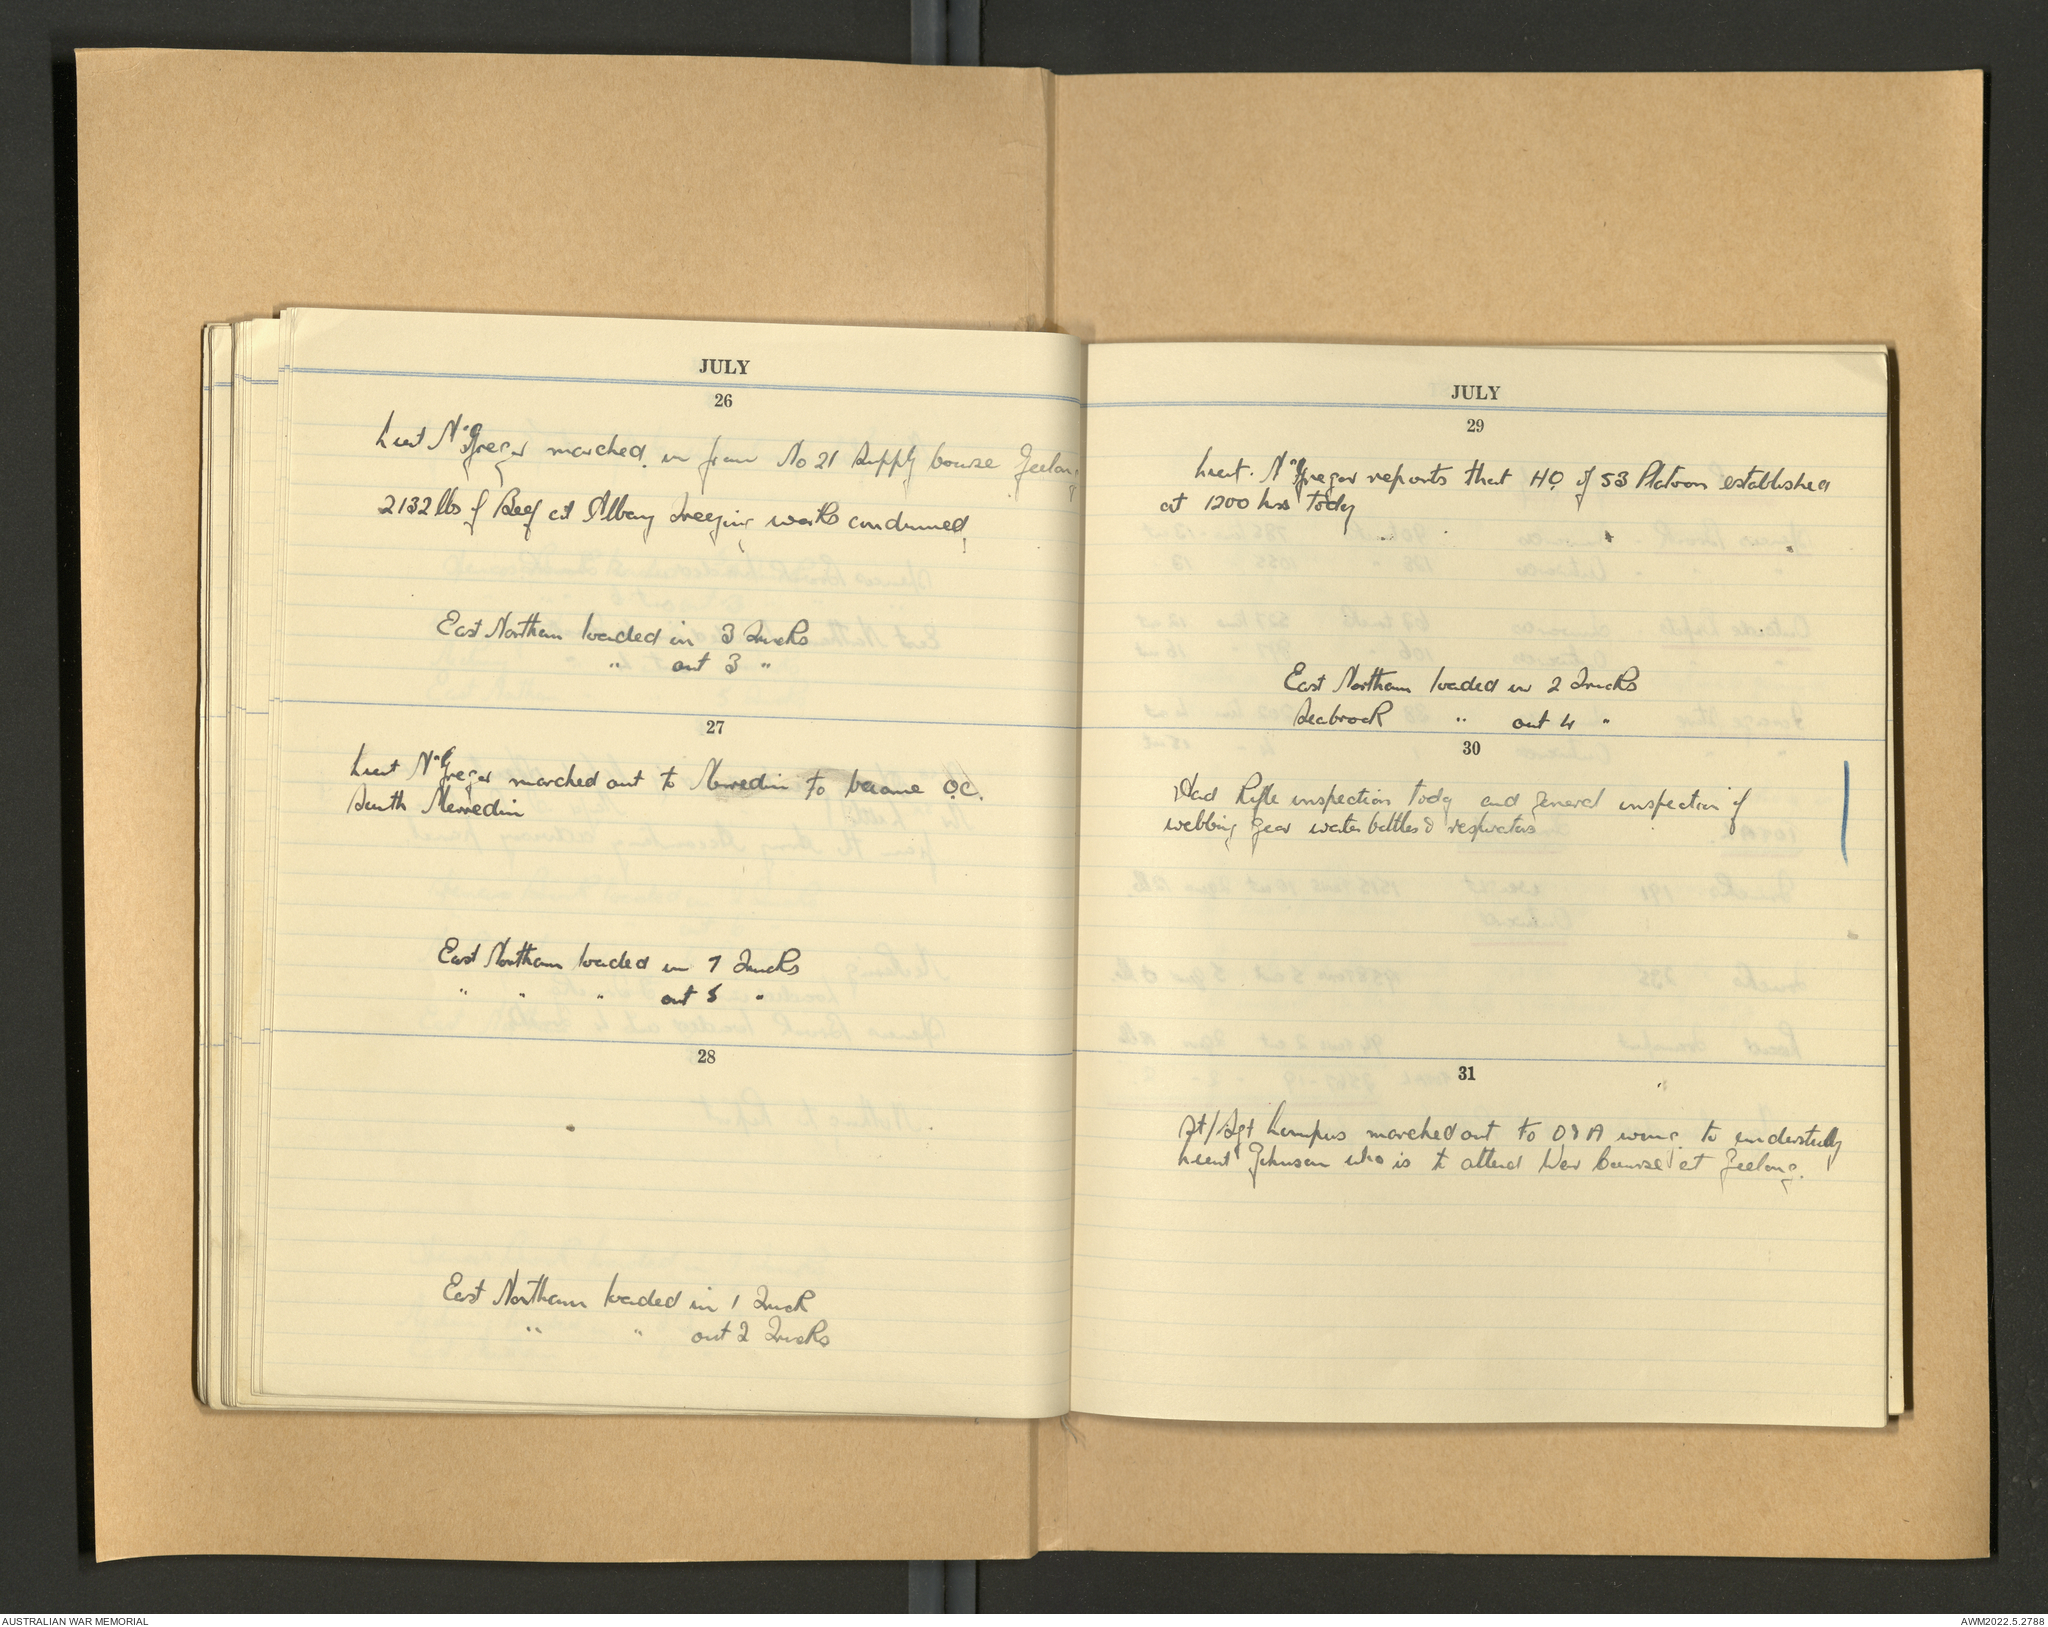 JULY
26
Lieut McGregor marched in from No 21 Supply Course Geelong
2132 lbs of Beef at Albany Freezing works condemned
East Northam loaded in 3 Trucks
" out 3 "
27
Lieut McGregor marched out to Merredin to become O.C.
South Merredin
East Northam loaded in 7 Trucks
" " " out 5 "
28
East Northam loaded in 1 Truck
" " out 2 Trucks
JULY
29
Lieut. McGregor reports that HQ of 53 Platoon established
at 1200 hrs Today
East Northam loaded in 2 Trucks
Seabrook " out 4 "
30
Had Rifle inspection Today and general inspection of
webbing gear water bottles & respirators
31
St/Sgt Lampus marched out to D&A wing. to understudy
Lieut Johnson who is to attend War Course at Geelong.
AUSTRALIAN WAR MEMORIAL
AWM2022.5.2788